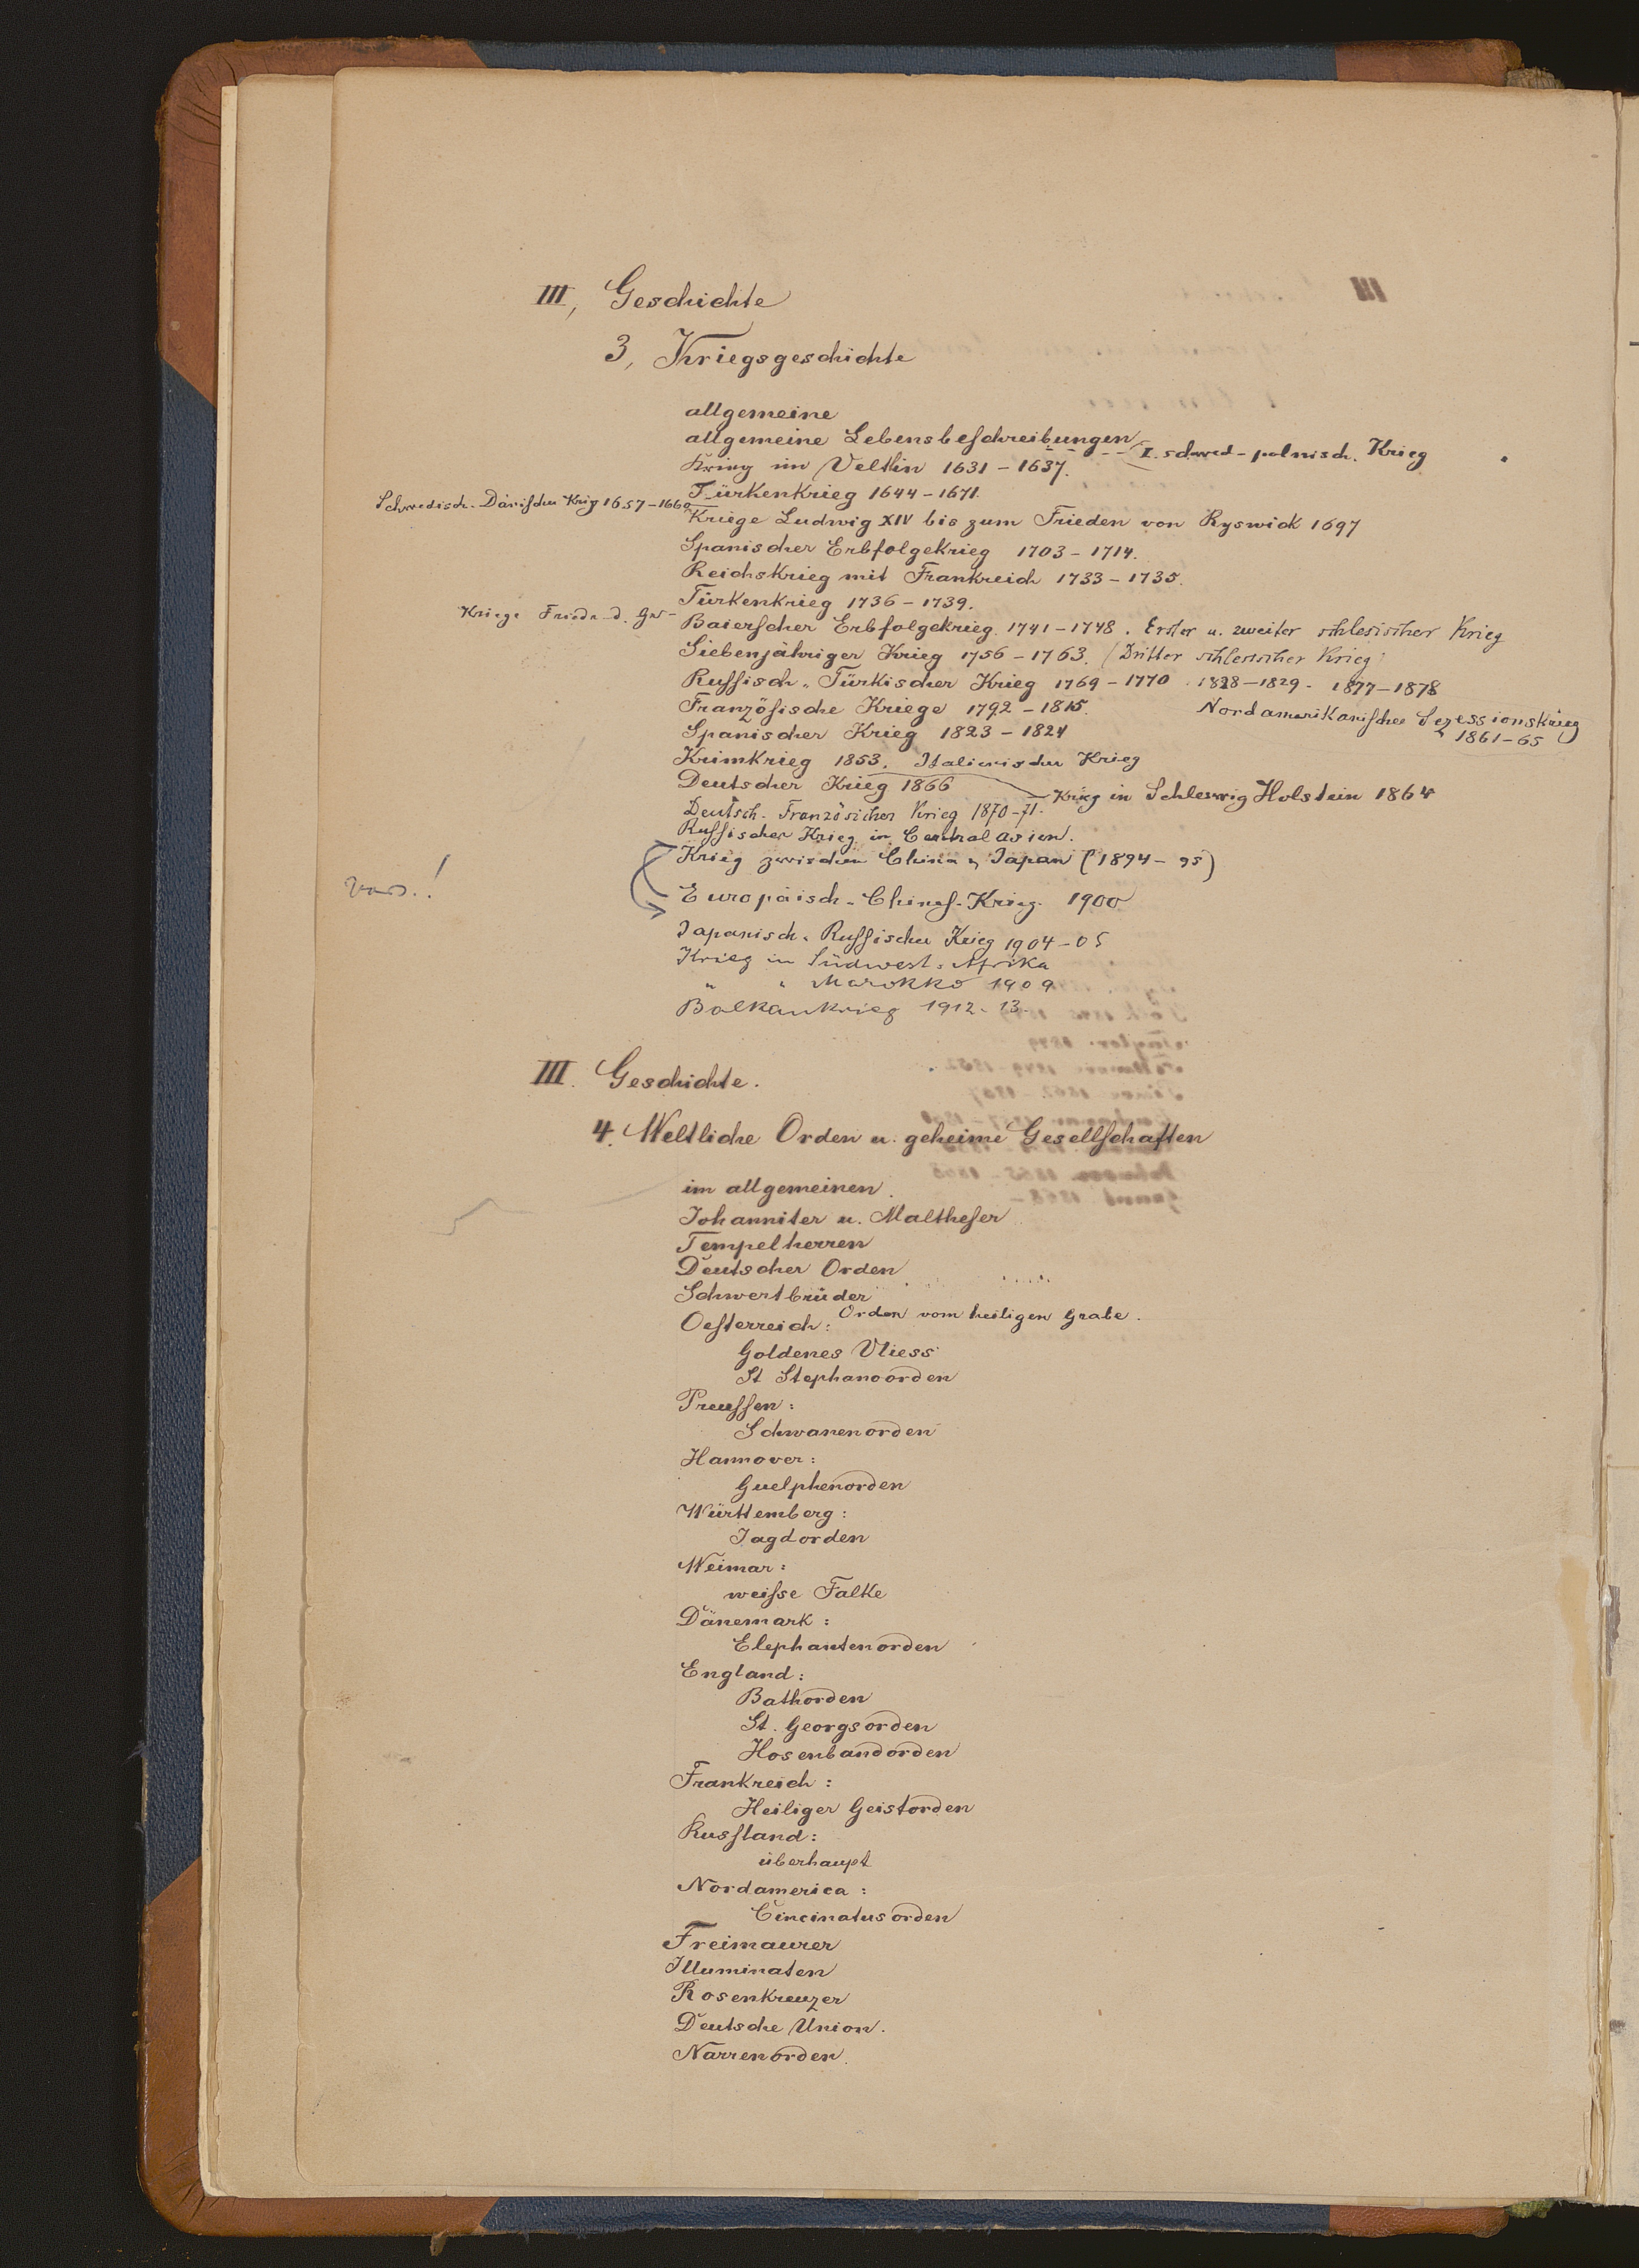 III, Geschichte
3, Kriegsgeschichte
allgemeine
allgemeine Lebensbeschreibungen
I. schwed-polnisch. Krieg
Krieg im Veltlin 1631 - 1637.
Türkenkrieg 1644 - 1671.
Schwedisch-Dänischer Krieg 1657-1660
Kriege Ludwig XIV bis zum Frieden von Ryswick 1697
Spanischer Erbfolgekrieg 1703 - 1714.
Reichskrieg mit Frankreich 1733 - 1735.
Türkenkrieg 1736 - 1739.
Kriege Friedr. d. Gr.
Baierscher Erbfolgekrieg. 1741 - 1748. Erster u. zweiter schlesischer Krieg
Siebenjähriger Krieg 1756 - 1763. (Dritter schlesischer Krieg)
Russisch-Türkischer Krieg 1769 - 1770 1828-1829. 1877-1878
Französische Kriege 1792 - 1815.
Nordamerikanischer Sezessionskrieg
1861-65
Spanischer Krieg 1823 - 1824
Krimkrieg 1853. Italienischer Krieg
Deutscher Krieg 1866
Krieg in Schleswig Holstein 1864
Deutsch-Französicher Krieg 1870-71.
Russischer Krieg in Central Asien.
Krieg zwischen China u. Japan (1894-95)
Europäisch-Chines. Krieg. 1900
Japanisch-Russischer Krieg 1904-05
Krieg in Südwest-Afrika
" " Marokko 1909
Balkankrieg 1912-13.
III. Geschichte.
4. Weltliche Orden u. geheime Gesellschaften
im allgemeinen.
Johanniter u. Maltheser
Tempelherren
Deutscher Orden
Schwertbrüder
Orden vom heiligen Grabe.
Oesterreich:
Goldenes Vliess
St Stephansorden
Preussen:
Schwanenorden
Hannover:
Guelphenorden
Württemberg:
Jagdorden
Weimar:
weisse Falke
Dänemark:
Elephantenorden
England:
Bathorden
St. Georgsorden
Hosenbandorden
Frankreich:
Heiliger Geistorden
Russland:
überhaupt
Nordamerica:
Cincinatusorden
Freimaurer
Illuminaten
Rosenkreuzer
Deutsche Union.
Narrenorden.